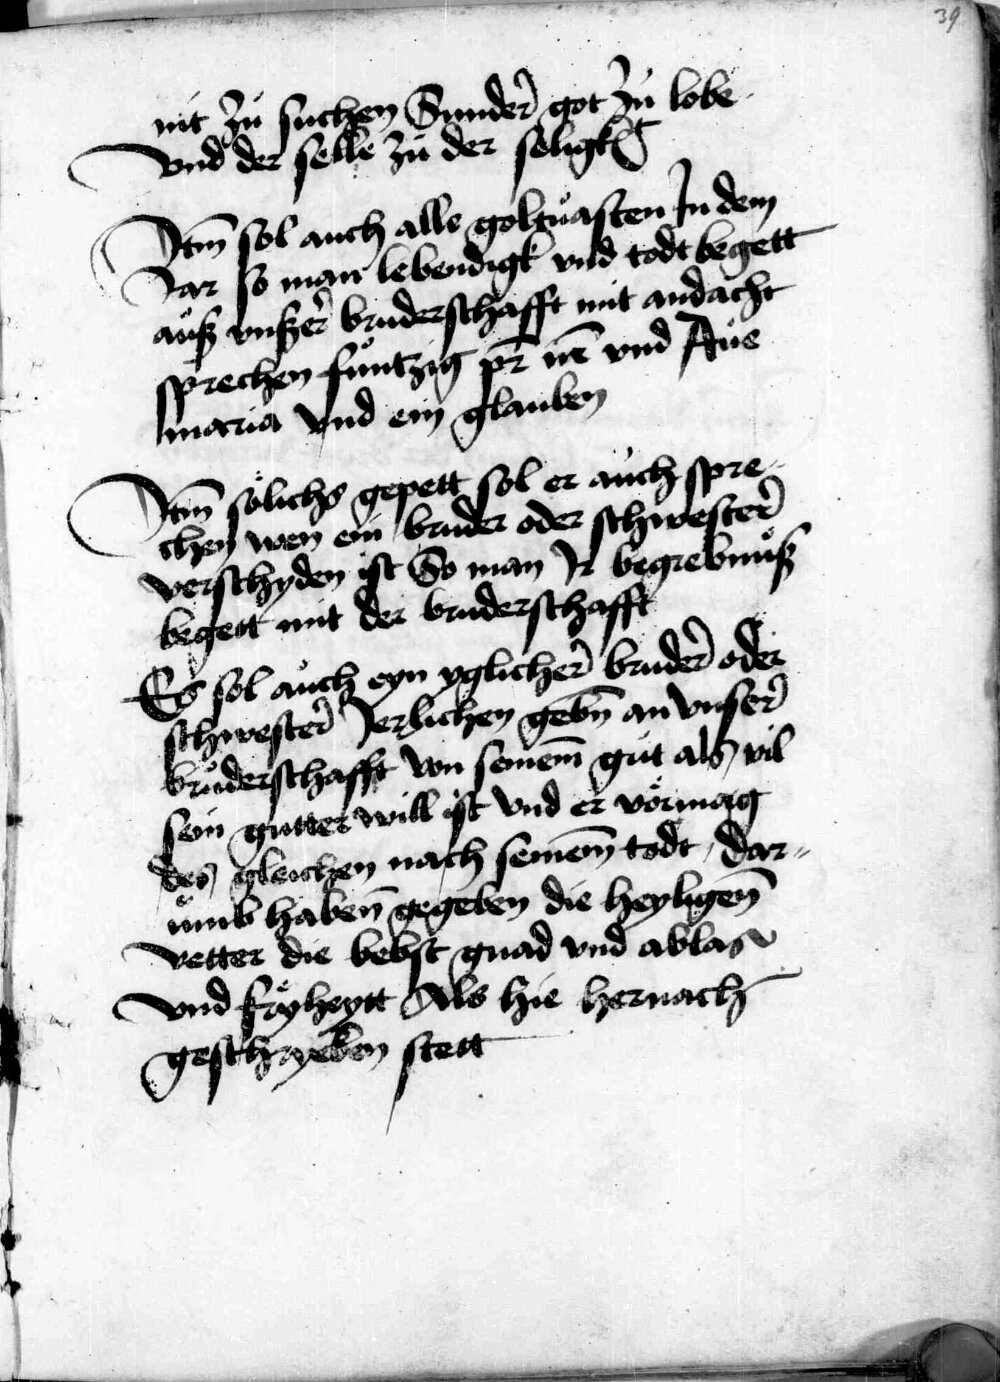 39
nit zů suchen Sunder got zů lobe
vnd der selle zu der seligkeit
Itm sol auch alle goltuasten In dem
Jar so man lebendigk vnd todt begett
auß vnßer bruderschafft mit andacht
sprechen funtzig pr nr vnd Aue
maria vnd ein glauben
Itm sölichs gepett sol er auch spre-
chen wen ein bruder oder schwester
verschyden ist So man Ir begrebnuß
begett mit der bruderschafft
Es sol auch eyn yglicher bruder oder
schwester Jerlichen gebn̄ an vnser
bruderschafft von seinem̄ gut als vil
sein gutter will ist vnd er vörmag
des gleichen nach seinem̄ todt / dar-
umb haben̄ gegeben die heyligen̄
vetter die bebst gnad vnd ablas
vnd frÿheytt Als hie hernach
geschryeben stett